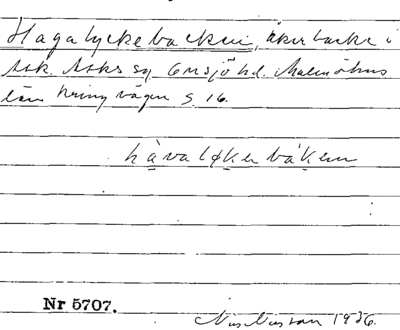 Hagalyckebacken, åkerbacke i
Ask. Asks sn. Onsjö hd. Malmöhus
län kring vägen S. 16.
hàvaløkebákenn
Nr 5707.
Nils Nilsson 1936.